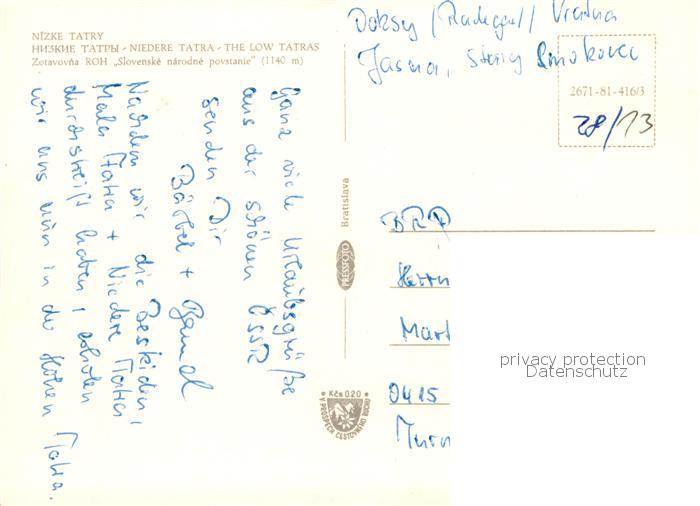 NÍZKE TATRY
НИЗКИЕ ТАТРЫ - NIEDERE TATRA - THE LOW TATRAS
Zotavovňa ROH „Slovenské národné povstanie" (1140 m)
Doksy (Radegast) Vratna
Jasna, Stary Smokovec
2671-81-416/3
28/13
Ganz viele Urlaubsgrüße
aus der schönen ČSSR
senden Dir
Bärbel + Bernd
Nachdem wir die Beskiden,
Mala Fatra + Niedere Tatra
durchstreift haben, erholen
wir uns nun in der Hohen Tatra.
Bratislava
PRESSFOTO
Kčs 0,20
V PROSPECH CESTOVNÉHO RUCHU
DDR
Herrn
Mart
0415
privacy protection
Datenschutz